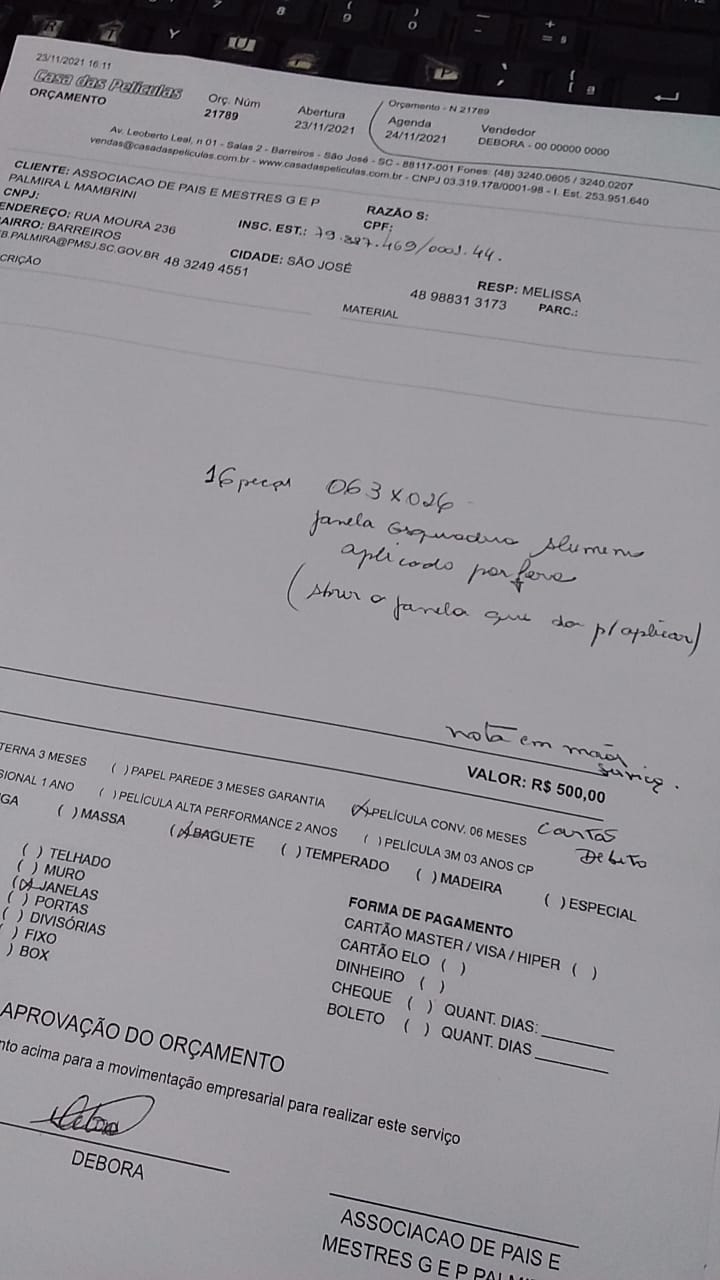 23/11/2021 16:11
Casa das Películas
ORÇAMENTO
Orç. Núm
21789
Abertura
23/11/2021
Orçamento - N 21789
Agenda
24/11/2021
Vendedor
DEBORA - 00 00000 0000
Av. Leoberto Leal, n 01 - Salas 2 - Barreiros - São José - SC - 88117-001 Fones: (48) 3240.0605 / 3240.0207
vendas@casadaspeliculas.com.br - www.casadaspeliculas.com.br - CNPJ 03.319.178/0001-98 - I. Est. 253.951.640
CLIENTE: ASSOCIACAO DE PAIS E MESTRES G E P
PALMIRA L MAMBRINI
RAZÃO S:
CNPJ:
INSC. EST.: 79.887.469/0001.44.
CPF:
ENDEREÇO: RUA MOURA 236
BAIRRO: BARREIROS
CIDADE: SÃO JOSÉ
EB.PALMIRA@PMSJ.SC.GOV.BR 48 3249 4551
RESP: MELISSA
48 98831 3173
PARC.:
CRIÇÃO
MATERIAL
16 peças 063x026
janela esquadria alumínio
aplicado por fora
(abrir a janela que da p/ aplicar)
nota em mãos
serviço.
VALOR: R$ 500,00
TERNA 3 MESES
( ) PAPEL PAREDE 3 MESES GARANTIA
(X) PELÍCULA CONV. 06 MESES
Cartão
Debito
SIONAL 1 ANO
( ) PELÍCULA ALTA PERFORMANCE 2 ANOS
( ) PELÍCULA 3M 03 ANOS CP
GA
( ) MASSA
(X) BAGUETE
( ) TEMPERADO
( ) MADEIRA
( ) ESPECIAL
( ) TELHADO
( ) MURO
(X) JANELAS
( ) PORTAS
( ) DIVISÓRIAS
) FIXO
) BOX
FORMA DE PAGAMENTO
CARTÃO MASTER / VISA / HIPER ( )
CARTÃO ELO ( )
DINHEIRO ( )
CHEQUE ( ) QUANT. DIAS:
BOLETO ( ) QUANT. DIAS
APROVAÇÃO DO ORÇAMENTO
nto acima para a movimentação empresarial para realizar este serviço
DEBORA
ASSOCIACAO DE PAIS E
MESTRES G E P